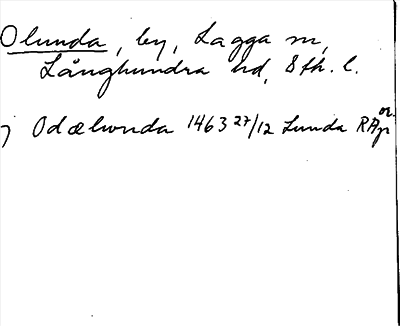 Olunda, by, Lagga sn,
Långhundra hd, Sth. l.
j Odælunda 1463 27/12 Lunda RAp or.